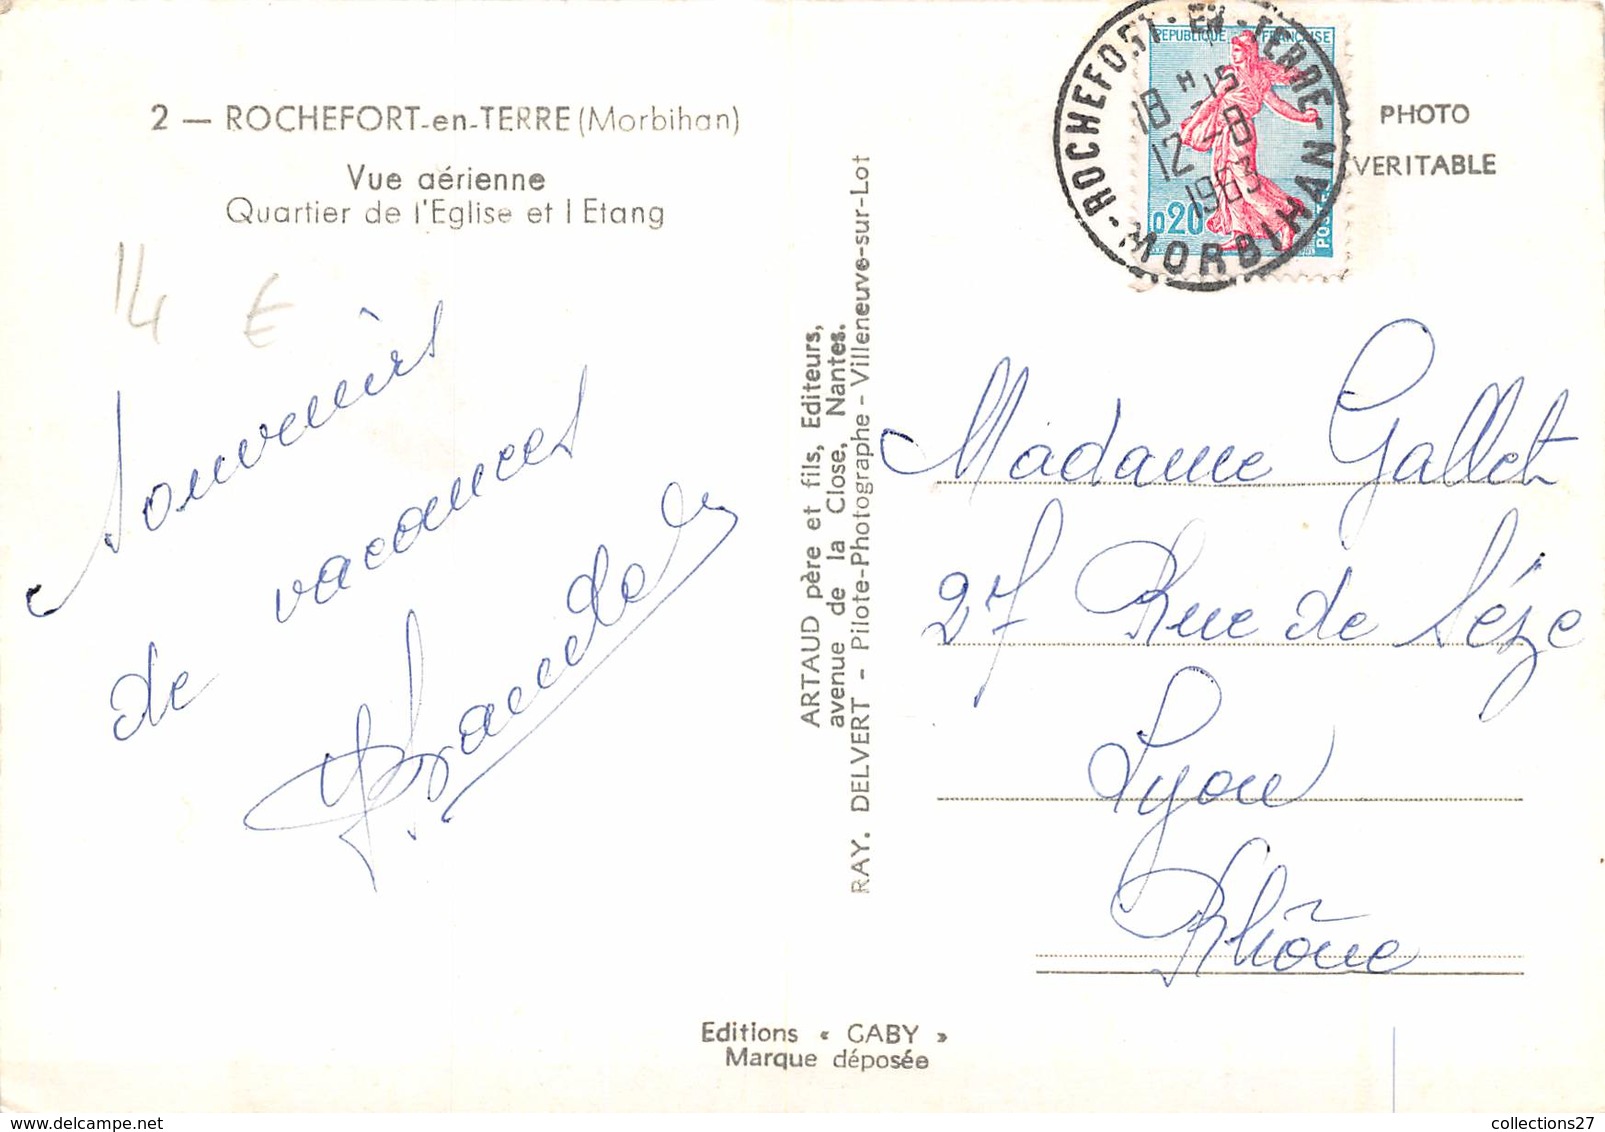 2 — ROCHEFORT-en-TERRE (Morbihan)
Vue aérienne
Quartier de l'Eglise et l Etang
14 €
Souvenirs
de vacances
ARTAUD père et fils, Editeurs,
avenue de la Close, Nantes.
RAY. DELVERT - Pilote-Photographe - Villeneuve-sur-Lot
REPUBLIQUE FRANÇAISE
0,20
POSTES
ROCHEFORT-EN-TERRE-
-MORBIHAN
18 H 15
12-8
1963
PHOTO
VERITABLE
Madame Gallet
27 Rue de Sèze
Lyon
Rhône
Editions « GABY »
Marque déposée
collections27